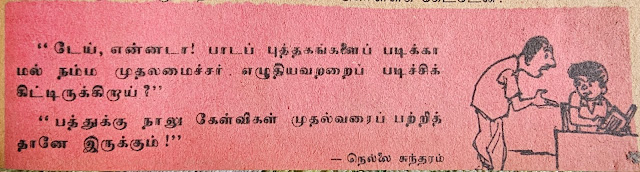 “ டேய், என்னடா! பாடப் புத்தகங்களைப் படிக்கா
மல் நம்ம முதலமைச்சர் எழுதியவறறைப் படிச்சிக்
கிட்டிருக்கிறாய்?”
“ பத்துக்கு நாலு கேள்விகள் முதல்வரைப் பற்றித்
தானே இருக்கும்!”
— நெல்லை சுந்தரம்